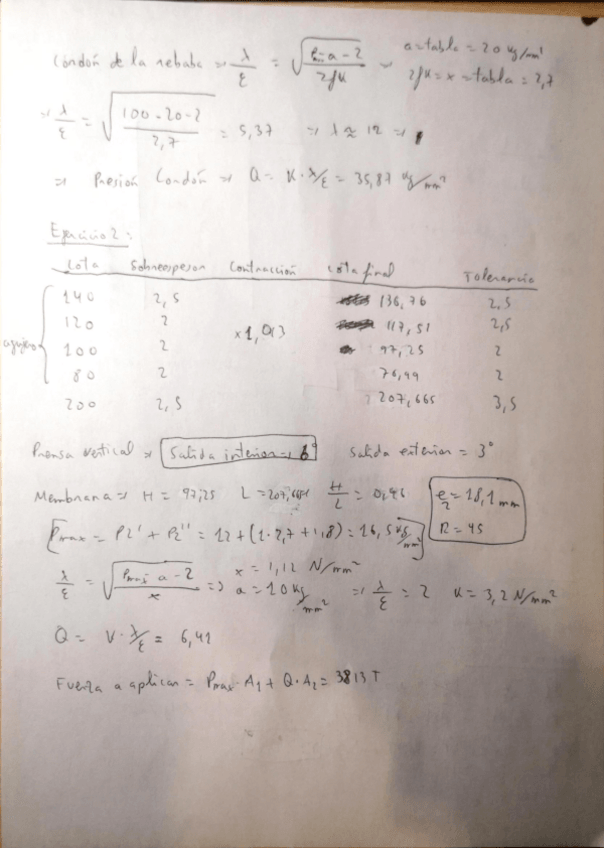 Cordón de la rebaba ⇒ λ/ε = √((Pmáx - a - 2)/2fK) → a = tabla = 20 kg/mm²
2fK = x = tabla = 2,7
⇒ λ/ε = √((100 - 20 - 2)/2,7) = 5,37 ⇒ λ ≈ 12 ⇒
⇒ Presión Cordón ⇒ Q = K · λ/ε = 35,87 kg/mm²
Ejercicio 2:
Cota Sobreespesor Contracción Cota final Tolerancia
140 2,5 136,76 2,5
120 2 117,51 2,5
agujero 100 2 x1,013 97,25 2
80 2 76,99 2
200 2,5 207,665 3,5
Prensa vertical ⇒ Salida interior = 6° Salida exterior = 3°
Membrana ⇒ H = 97,25 L = 207,665 H/L = 0,46 e₂ = 18,1 mm
R = 45
Pmax = P2' + P2'' = 12 + (1 · 2,7 + 1,8) = 16,5 kg/mm²
λ/ε = √((Pmax - a - 2)/x) ⇒ x = 1,12 N/mm²
a = 10 kg/mm² ⇒ λ/ε = 2 K = 3,2 N/mm²
Q = K · λ/ε = 6,41
Fuerza a aplicar = Pmax · A₁ + Q · A₂ = 3813 T